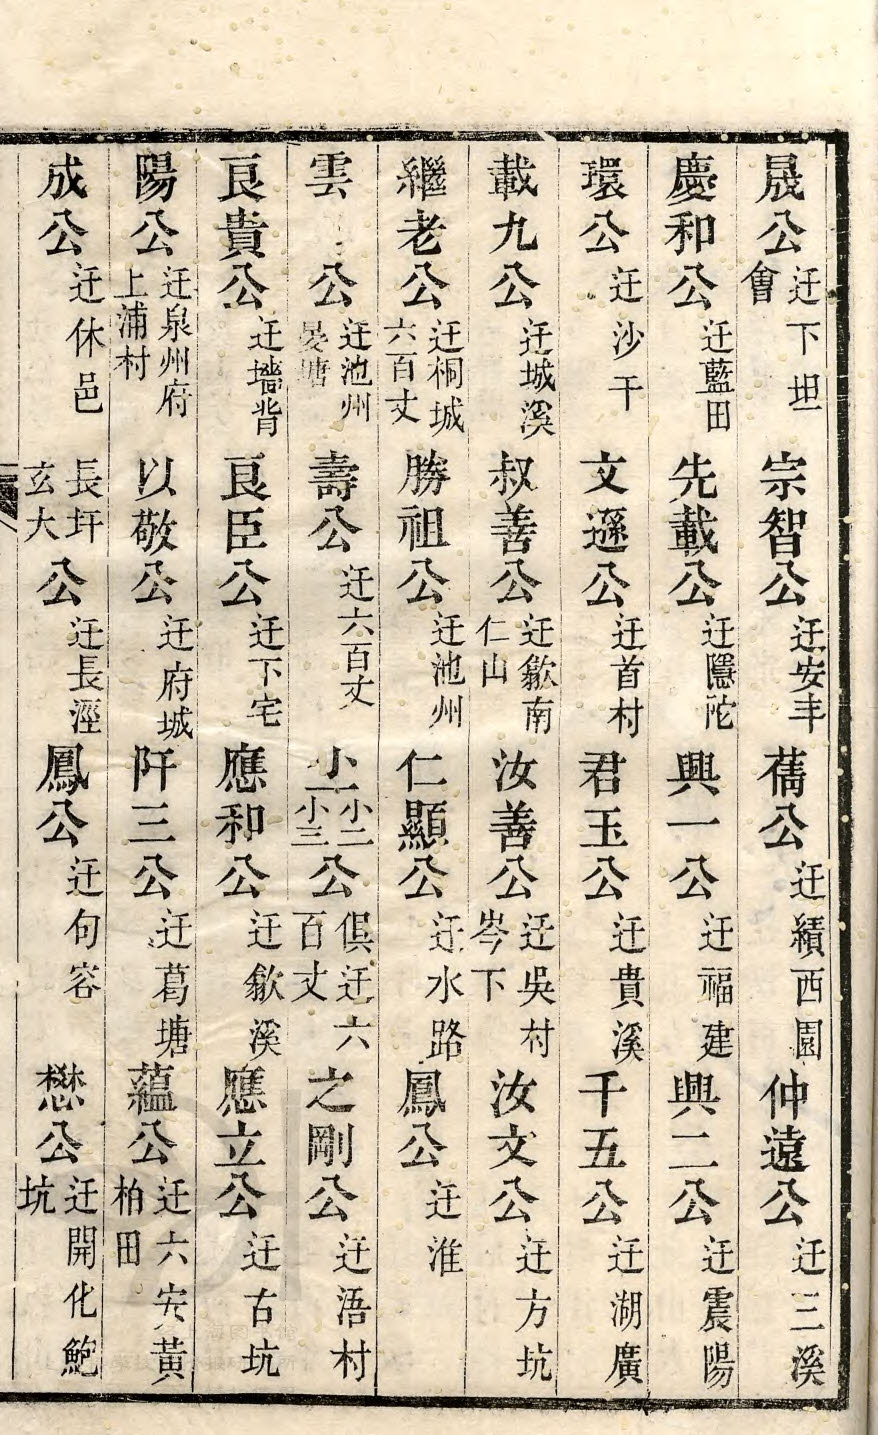 晟公迁下坦會　宗智公迁安丰　儁公迁績西園　仲遠公迁三溪
慶和公迁藍田　先載公迁隱陀　興一公迁福建　興二公迁震陽
環公迁沙干　文遜公迁首村　君玉公迁貴溪　千五公迁湖廣
載九公迁城溪　叔善公迁歙南仁山　汝善公迁吳村岑下　汝文公迁方坑
繼老公迁桐城六百丈　勝祖公迁池州　仁顯公迁水路　鳳公迁淮
雲公迁池州晏塘　壽公迁六百丈　小一小二小三公俱迁六百丈　之剛公迁浯村
良貴公迁墻背　良臣公迁下宅　應和公迁歙溪　應立公迁古坑
陽公迁泉州府上浦村　以敬公迁府城　阡三公迁葛塘　蘊公迁六安黃柏田
成公迁休邑　長圩玄大公迁長涇　鳳公迁句容　懋公迁開化鮑坑